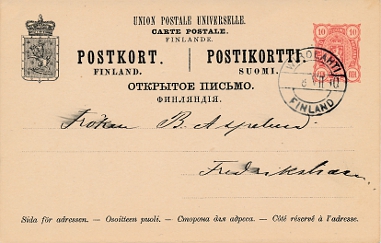 UNION POSTALE UNIVERSELLE.
CARTE POSTALE.
FINLANDE.
POSTKORT. POSTIKORTTI.
FINLAND. SUOMI.
ОТКРЫТОЕ ПИСЬМО.
ФИНЛЯНДІЯ.
10 10
FINLAND
Fröken B. Aspelund.
Fredrikshamn
Sida för adressen. — Osoitteen puoli. — Сторона для адреса. — Côté réservé à l'adresse.